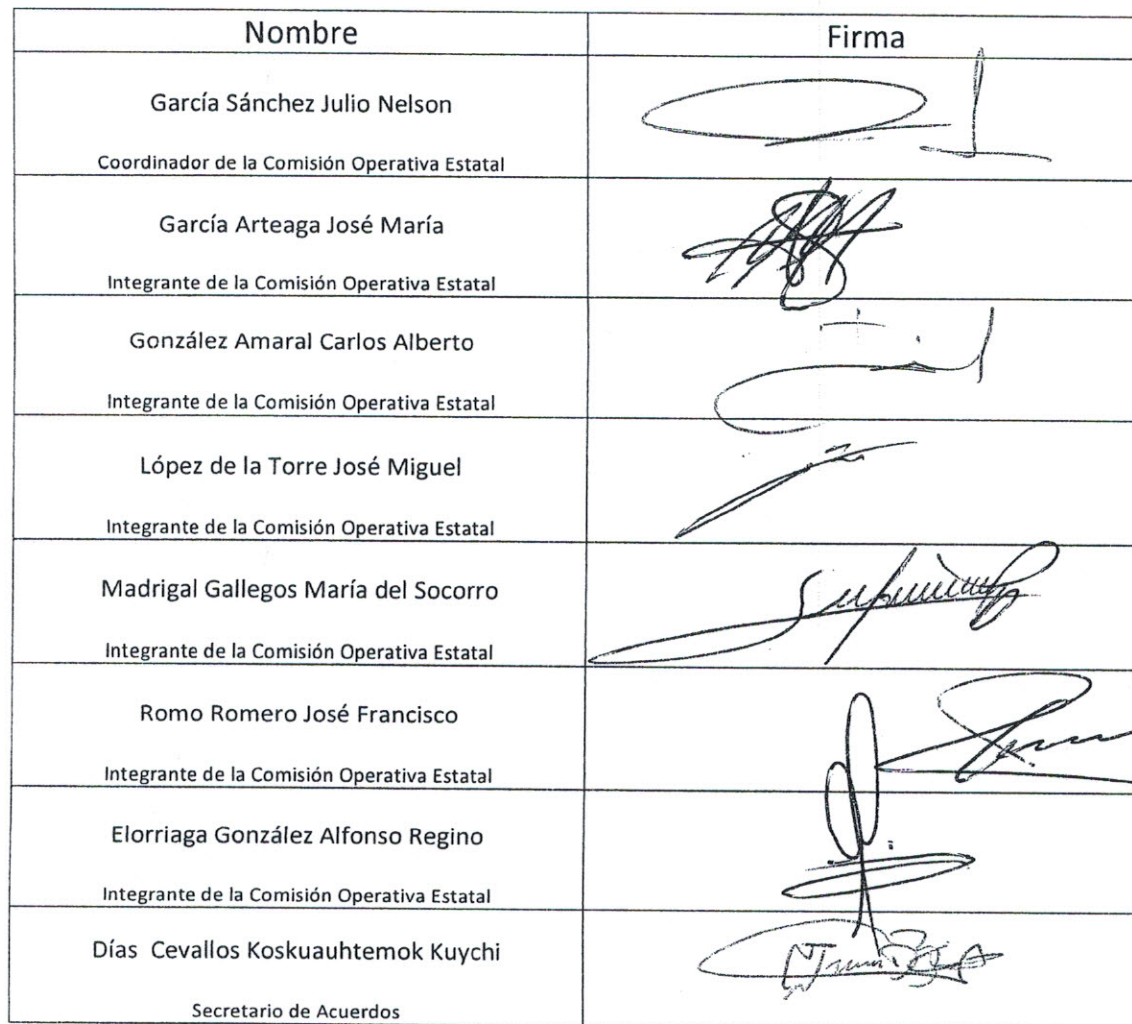 Nombre
Firma
García Sánchez Julio Nelson
Coordinador de la Comisión Operativa Estatal
García Arteaga José María
Integrante de la Comisión Operativa Estatal
González Amaral Carlos Alberto
Integrante de la Comisión Operativa Estatal
López de la Torre José Miguel
Integrante de la Comisión Operativa Estatal
Madrigal Gallegos María del Socorro
Integrante de la Comisión Operativa Estatal
Romo Romero José Francisco
Integrante de la Comisión Operativa Estatal
Elorriaga González Alfonso Regino
Integrante de la Comisión Operativa Estatal
Días Cevallos Koskuauhtemok Kuychi
Secretario de Acuerdos